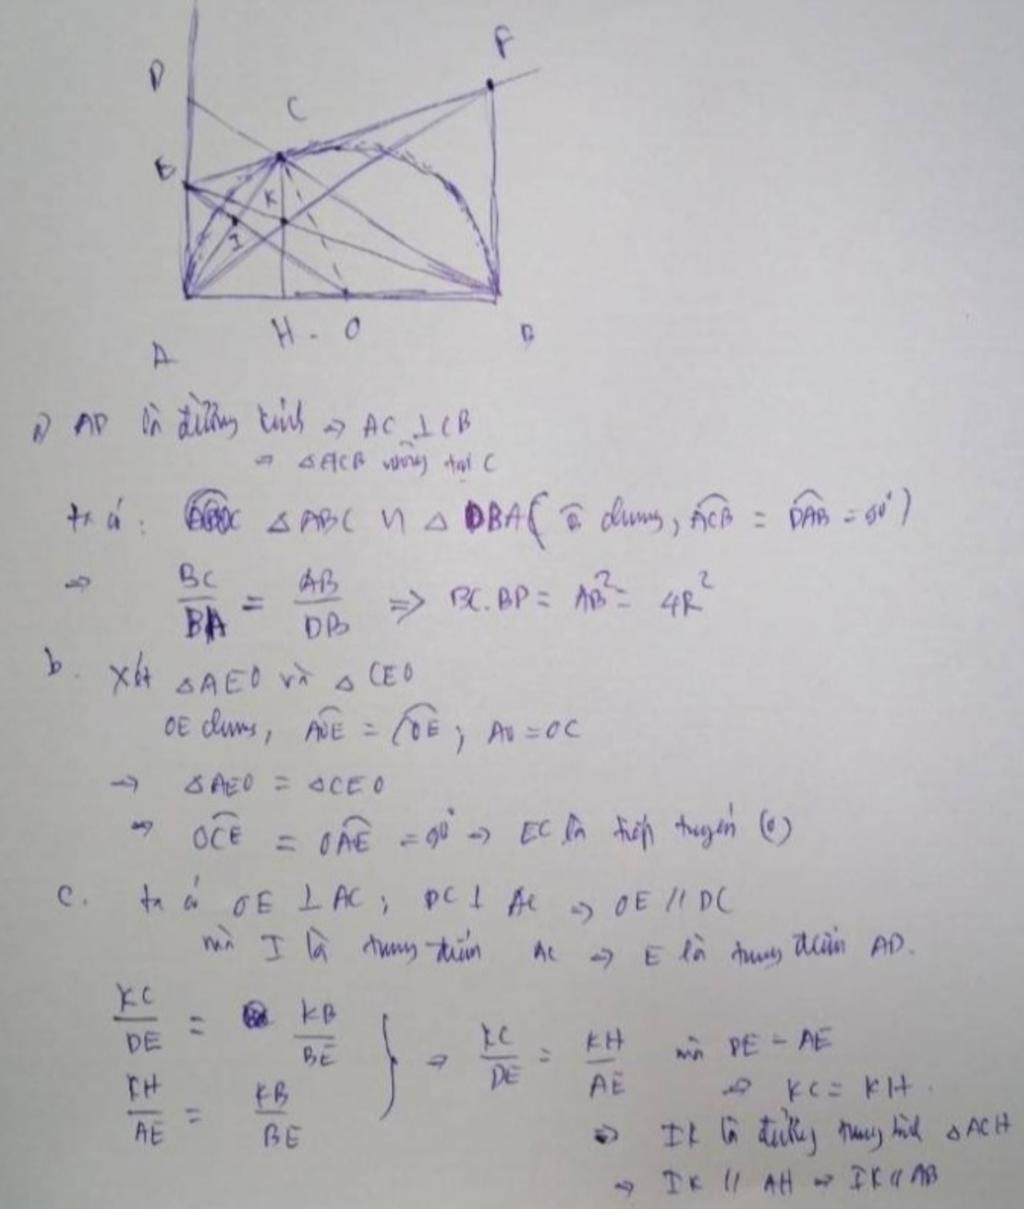 D
F
C
E
K
I
A
H
O
B
a) AB là đường kính ⇒ AC ⊥ CB
⇒ △ACB vuông tại C
ta có: △ABC ∽ △DBA ( chung, ACB = DAB = 90°)
⇒ BC/BA = AB/DB ⇒ BC.BD = AB² = 4R²
b. Xét △AEO và △CEO
OE chung, AOE = COE; AO = OC
→ △AEO = △CEO
⇒ OCE = OAE = 90° → EC là tiếp tuyến (O)
c. ta có OE ⊥ AC; DC ⊥ AC ⇒ OE // DC
mà I là trung điểm AC ⇒ E là trung điểm AD.
KC/DE = KB/BE
KH/AE = KB/BE
} ⇒ KC/DE = KH/AE mà DE = AE
⇒ KC = KH.
⇒ IK là đường trung bình △ACH
→ IK // AH ⇒ IK // AB